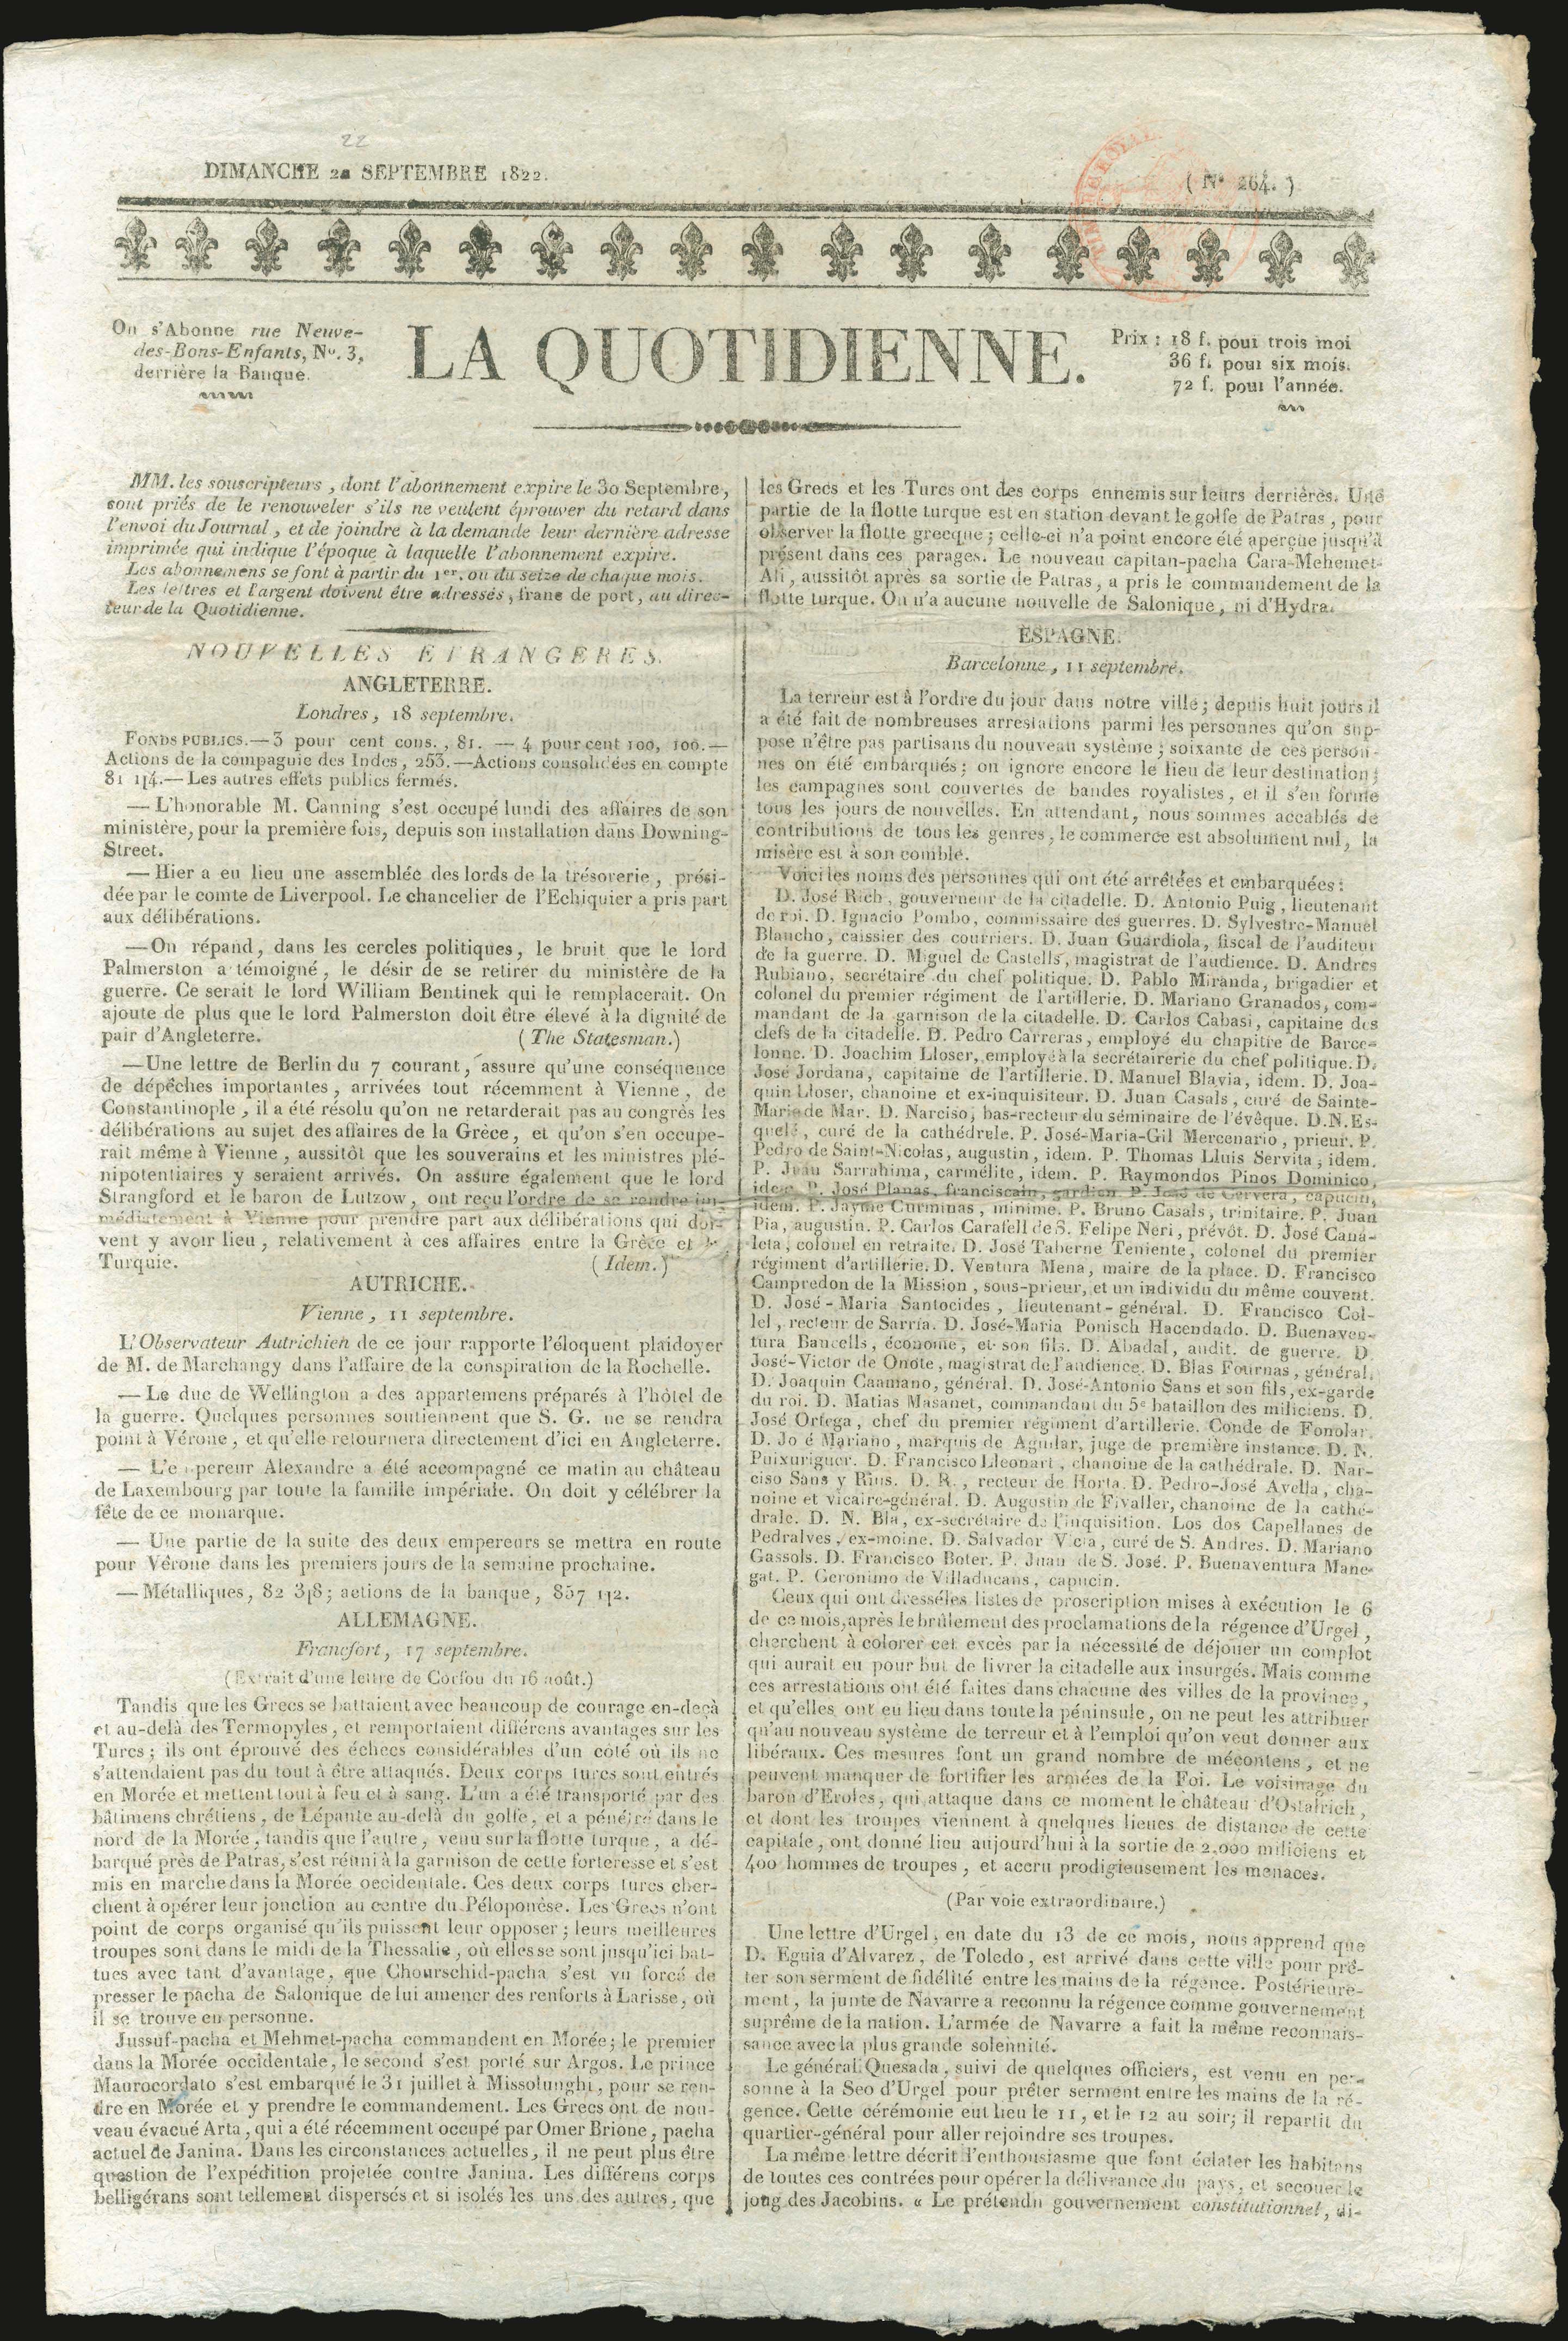 22
DIMANCHE 22 SEPTEMBRE 1822.
( N° 264. )
On s'Abonne rue Neuve-
des-Bons-Enfants, N°. 3,
derrière la Banque.
LA QUOTIDIENNE.
Prix : 18 f. pour trois moi
36 f. pour six mois.
72 f. pour l'année.
MM. les souscripteurs, dont l'abonnement expire le 30 Septembre,
sont priés de le renouveler s'ils ne veulent éprouver du retard dans
l'envoi du Journal, et de joindre à la demande leur dernière adresse
imprimée qui indique l'époque à laquelle l'abonnement expire.
Les abonnemens se font à partir du 1er. ou du seize de chaque mois.
Les lettres et l'argent doivent être adressés, franc de port, au direc-
teur de la Quotidienne.
NOUVELLES ETRANGERES.
ANGLETERRE.
Londres, 18 septembre.
FONDS PUBLICS.—3 pour cent cons., 81. — 4 pour cent 100, 100.—
Actions de la compagnie des Indes, 253.—Actions consolidées en compte
81 1/4.— Les autres effets publics fermés.
— L'honorable M. Canning s'est occupé lundi des affaires de son
ministère, pour la première fois, depuis son installation dans Downing-
Street.
— Hier a eu lieu une assemblée des lords de la trésorerie, prési-
dée par le comte de Liverpool. Le chancelier de l'Echiquier a pris part
aux délibérations.
—On répand, dans les cercles politiques, le bruit que le lord
Palmerston a témoigné, le désir de se retirer du ministère de la
guerre. Ce serait le lord William Bentinek qui le remplacerait. On
ajoute de plus que le lord Palmerston doit être élevé à la dignité de
pair d'Angleterre. (The Statesman.)
—Une lettre de Berlin du 7 courant, assure qu'une conséquence
de dépêches importantes, arrivées tout récemment à Vienne, de
Constantinople, il a été résolu qu'on ne retarderait pas au congrès les
délibérations au sujet des affaires de la Grèce, et qu'on s'en occupe-
rait même à Vienne, aussitôt que les souverains et les ministres plé-
nipotentiaires y seraient arrivés. On assure également que le lord
Strangford et le baron de Lutzow, ont reçu l'ordre de se rendre im-
médiatement à Vienne pour prendre part aux délibérations qui doi-
vent y avoir lieu, relativement à ces affaires entre la Grèce et la
Turquie. (Idem.)
AUTRICHE.
Vienne, 11 septembre.
L'Observateur Autrichien de ce jour rapporte l'éloquent plaidoyer
de M. de Marchangy dans l'affaire de la conspiration de la Rochelle.
— Le duc de Wellington a des appartemens préparés à l'hôtel de
la guerre. Quelques personnes soutiennent que S. G. ne se rendra
point à Vérone, et qu'elle retournera directement d'ici en Angleterre.
— L'e pereur Alexandre a été accompagné ce matin au château
de Laxembourg par toute la famille impériale. On doit y célébrer la
fête de ce monarque.
— Une partie de la suite des deux empereurs se mettra en route
pour Vérone dans les premiers jours de la semaine prochaine.
— Métalliques, 82 3/8; actions de la banque, 857 1/2.
ALLEMAGNE.
Francfort, 17 septembre.
(Extrait d'une lettre de Corfou du 16 août.)
Tandis que les Grecs se battaient avec beaucoup de courage en-deçà
et au-delà des Termopyles, et remportaient différens avantages sur les
Turcs; ils ont éprouvé des échecs considérables d'un côté où ils ne
s'attendaient pas du tout à être attaqués. Deux corps turcs sont entrés
en Morée et mettent tout à feu et à sang. L'un a été transporté par des
bâtimens chrétiens, de Lépante au-delà du golfe, et a pénétré dans le
nord de la Morée, tandis que l'autre, venu sur la flotte turque, a dé-
barqué près de Patras, s'est réuni à la garnison de cette forteresse et s'est
mis en marche dans la Morée occidentale. Ces deux corps turcs cher-
chent à opérer leur jonction au centre du Péloponèse. Les Grecs n'ont
point de corps organisé qu'ils puissent leur opposer; leurs meilleures
troupes sont dans le midi de la Thessalie, où elles se sont jusqu'ici bat-
tues avec tant d'avantage, que Chourschid-pacha s'est vu forcé de
presser le pacha de Salonique de lui amener des renforts à Larisse, où
il se trouve en personne.
Jussuf-pacha et Mehmet-pacha commandent en Morée; le premier
dans la Morée occidentale, le second s'est porté sur Argos. Le prince
Maurocordato s'est embarqué le 31 juillet à Missolunghi, pour se ren-
dre en Morée et y prendre le commandement. Les Grecs ont de nou-
veau évacué Arta, qui a été récemment occupé par Omer Brione, pacha
actuel de Janina. Dans les circonstances actuelles, il ne peut plus être
question de l'expédition projetée contre Janina. Les différens corps
belligérans sont tellement dispersés et si isolés les uns des autres, que
les Grecs et les Turcs ont des corps ennemis sur leurs derrières. Une
partie de la flotte turque est en station devant le golfe de Patras, pour
observer la flotte grecque; celle-ci n'a point encore été aperçue jusqu'à
présent dans ces parages. Le nouveau capitan-pacha Cara-Mehemet-
Ali, aussitôt après sa sortie de Patras, a pris le commandement de la
flotte turque. On n'a aucune nouvelle de Salonique, ni d'Hydra.
ESPAGNE.
Barcelonne, 11 septembre.
La terreur est à l'ordre du jour dans notre ville; depuis huit jours il
a été fait de nombreuses arrestations parmi les personnes qu'on sup-
pose n'être pas partisans du nouveau système; soixante de ces person-
nes on été embarqués; on ignore encore le lieu de leur destination;
les campagnes sont couvertes de bandes royalistes, et il s'en forme
tous les jours de nouvelles. En attendant, nous sommes accablés de
contributions de tous les genres, le commerce est absolument nul, la
misère est à son comble.
Voici les noms des personnes qui ont été arrêtées et embarquées:
D. José Rich, gouverneur de la citadelle. D. Antonio Puig, lieutenant
de roi. D. Ignacio Pombo, commissaire des guerres. D. Sylvestre-Manuel
Blancho, caissier des courriers. D. Juan Guardiola, fiscal de l'auditeur
de la guerre. D. Miguel de Castells, magistrat de l'audience. D. Andres
Rubiano, secrétaire du chef politique. D. Pablo Miranda, brigadier et
colonel du premier régiment de l'artillerie. D. Mariano Granados, com-
mandant de la garnison de la citadelle. D. Carlos Cabasi, capitaine des
clefs de la citadelle. D. Pedro Carreras, employé du chapitre de Barce-
lonne. D. Joachim Lloser, employé à la secrétairerie du chef politique. D.
José Jordana, capitaine de l'artillerie. D. Manuel Blavia, idem. D. Joa-
quin Lloser, chanoine et ex-inquisiteur. D. Juan Casals, curé de Sainte-
Marie de Mar. D. Narciso, bas-recteur du séminaire de l'évêque. D. N. Es-
quelé, curé de la cathédrale. P. José-Maria-Gil Mercenario, prieur. P.
Pedro de Saint-Nicolas, augustin, idem. P. Thomas Lluis Servita, idem.
P. Juan Sarrahima, carmélite, idem. P. Raymondos Pinos Dominico,
idem. P. José Planas, franciscain, gardien. P. José de Cervera, capucin,
idem. P. Jayme Curminas, minime. P. Bruno Casals, trinitaire. P. Juan
Pia, augustin. P. Carlos Carafell de S. Felipe Neri, prévôt. D. José Cana-
leta, colonel en retraite. D. José Taberne Teniente, colonel du premier
régiment d'artillerie. D. Ventura Mena, maire de la place. D. Francisco
Campredon de la Mission, sous-prieur, et un individu du même couvent.
D. José-Maria Santocides, lieutenant-général. D. Francisco Col-
lel, recteur de Sarria. D. José-Maria Ponisch Hacendado. D. Buenaven-
tura Bancells, économe, et son fils. D. Abadal, audit. de guerre. D.
José-Victor de Onote, magistrat de l'audience. D. Blas Fournas, général.
D. Joaquin Caamano, général. D. José-Antonio Sans et son fils, ex-garde
du roi. D. Matias Masanet, commandant du 5e bataillon des miliciens. D.
José Ortega, chef du premier régiment d'artillerie. Conde de Fonolar.
D. Jo é Mariano, marquis de Aguilar, juge de première instance. D. N.
Puixuriguer. D. Francisco Lleonart, chanoine de la cathédrale. D. Nar-
ciso Sans y Rius. D. R., recteur de Horta. D. Pedro-José Avella, cha-
noine et vicaire-général. D. Augustin de Fivaller, chanoine de la cathé-
drale. D. N. Bla, ex-secrétaire de l'inquisition. Los dos Capellanes de
Pedralves, ex-moine. D. Salvador Vicia, curé de S. Andres. D. Mariano
Gassols. D. Francisco Boter. P. Juan de S. José. P. Buenaventura Mane-
gat. P. Geronimo de Villaducans, capucin.
Ceux qui ont dressé les listes de proscription mises à exécution le 6
de ce mois, après le brûlement des proclamations de la régence d'Urgel,
cherchent à colorer cet excès par la nécessité de déjouer un complot
qui aurait eu pour but de livrer la citadelle aux insurgés. Mais comme
ces arrestations ont été faites dans chacune des villes de la province,
et qu'elles ont eu lieu dans toute la péninsule, on ne peut les attribuer
qu'au nouveau système de terreur et à l'emploi qu'on veut donner aux
libéraux. Ces mesures font un grand nombre de mécontens, et ne
peuvent manquer de fortifier les armées de la Foi. Le voisinage du
baron d'Eroles, qui attaque dans ce moment le château d'Ostalrich,
et dont les troupes viennent à quelques lieues de distance de cette
capitale, ont donné lieu aujourd'hui à la sortie de 2,000 miliciens et
400 hommes de troupes, et accru prodigieusement les menaces.
(Par voie extraordinaire.)
Une lettre d'Urgel, en date du 13 de ce mois, nous apprend que
D. Eguia d'Alvarez, de Toledo, est arrivé dans cette ville pour prê-
ter son serment de fidélité entre les mains de la régence. Postérieure-
ment, la junte de Navarre a reconnu la régence comme gouvernement
suprême de la nation. L'armée de Navarre a fait la même reconnais-
sance avec la plus grande solennité.
Le général Quesada, suivi de quelques officiers, est venu en per-
sonne à la Seo d'Urgel pour prêter serment entre les mains de la ré-
gence. Cette cérémonie eut lieu le 11, et le 12 au soir; il repartit du
quartier-général pour aller rejoindre ses troupes.
La même lettre décrit l'enthousiasme que font éclater les habitans
de toutes ces contrées pour opérer la délivrance du pays, et secouer le
joug des Jacobins. « Le prétendu gouvernement constitutionnel, di-